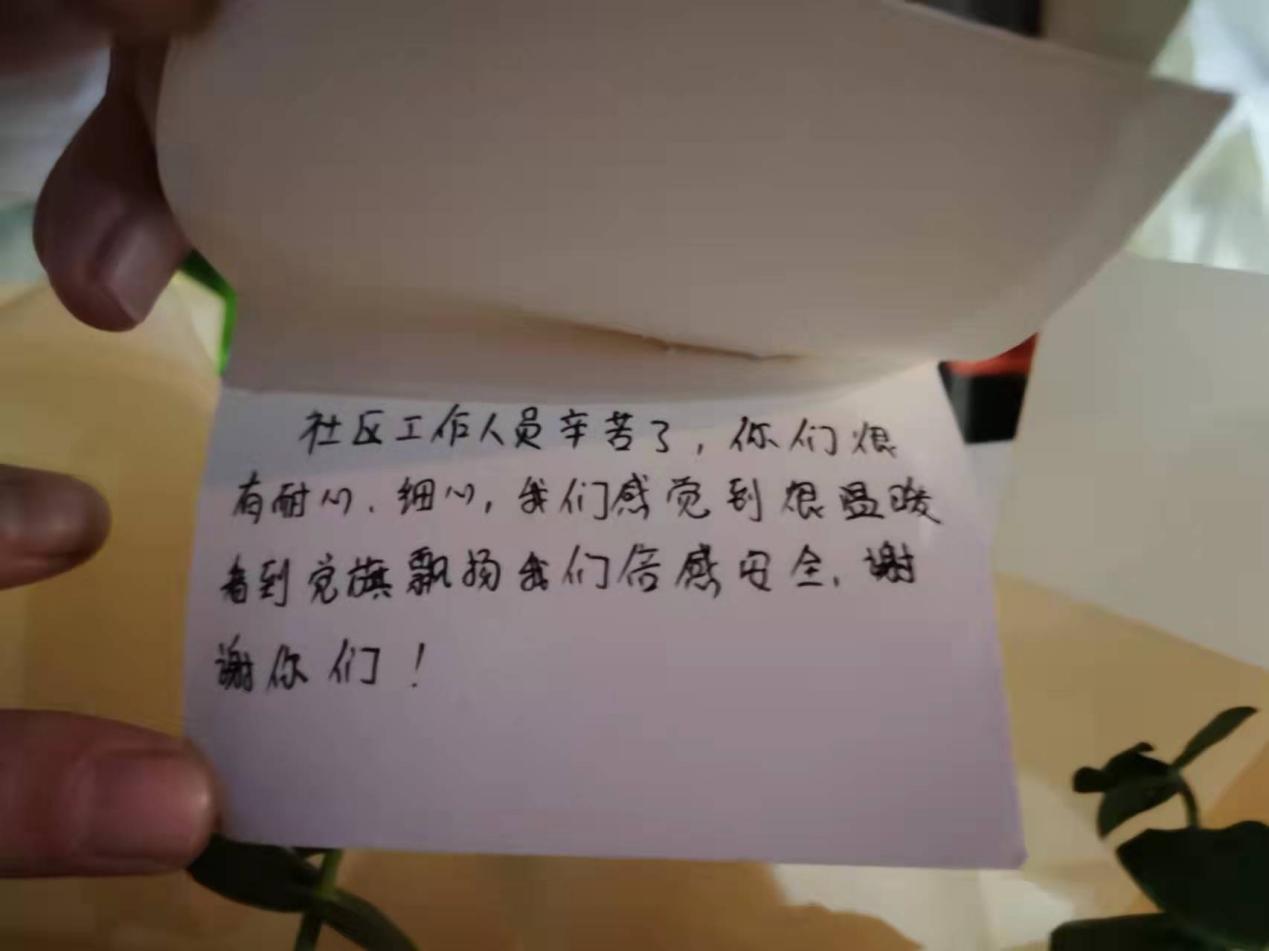 社区工作人员辛苦了，你们很
有耐心、细心，我们感觉到很温暖
看到党旗飘扬我们倍感安全、谢
谢你们！